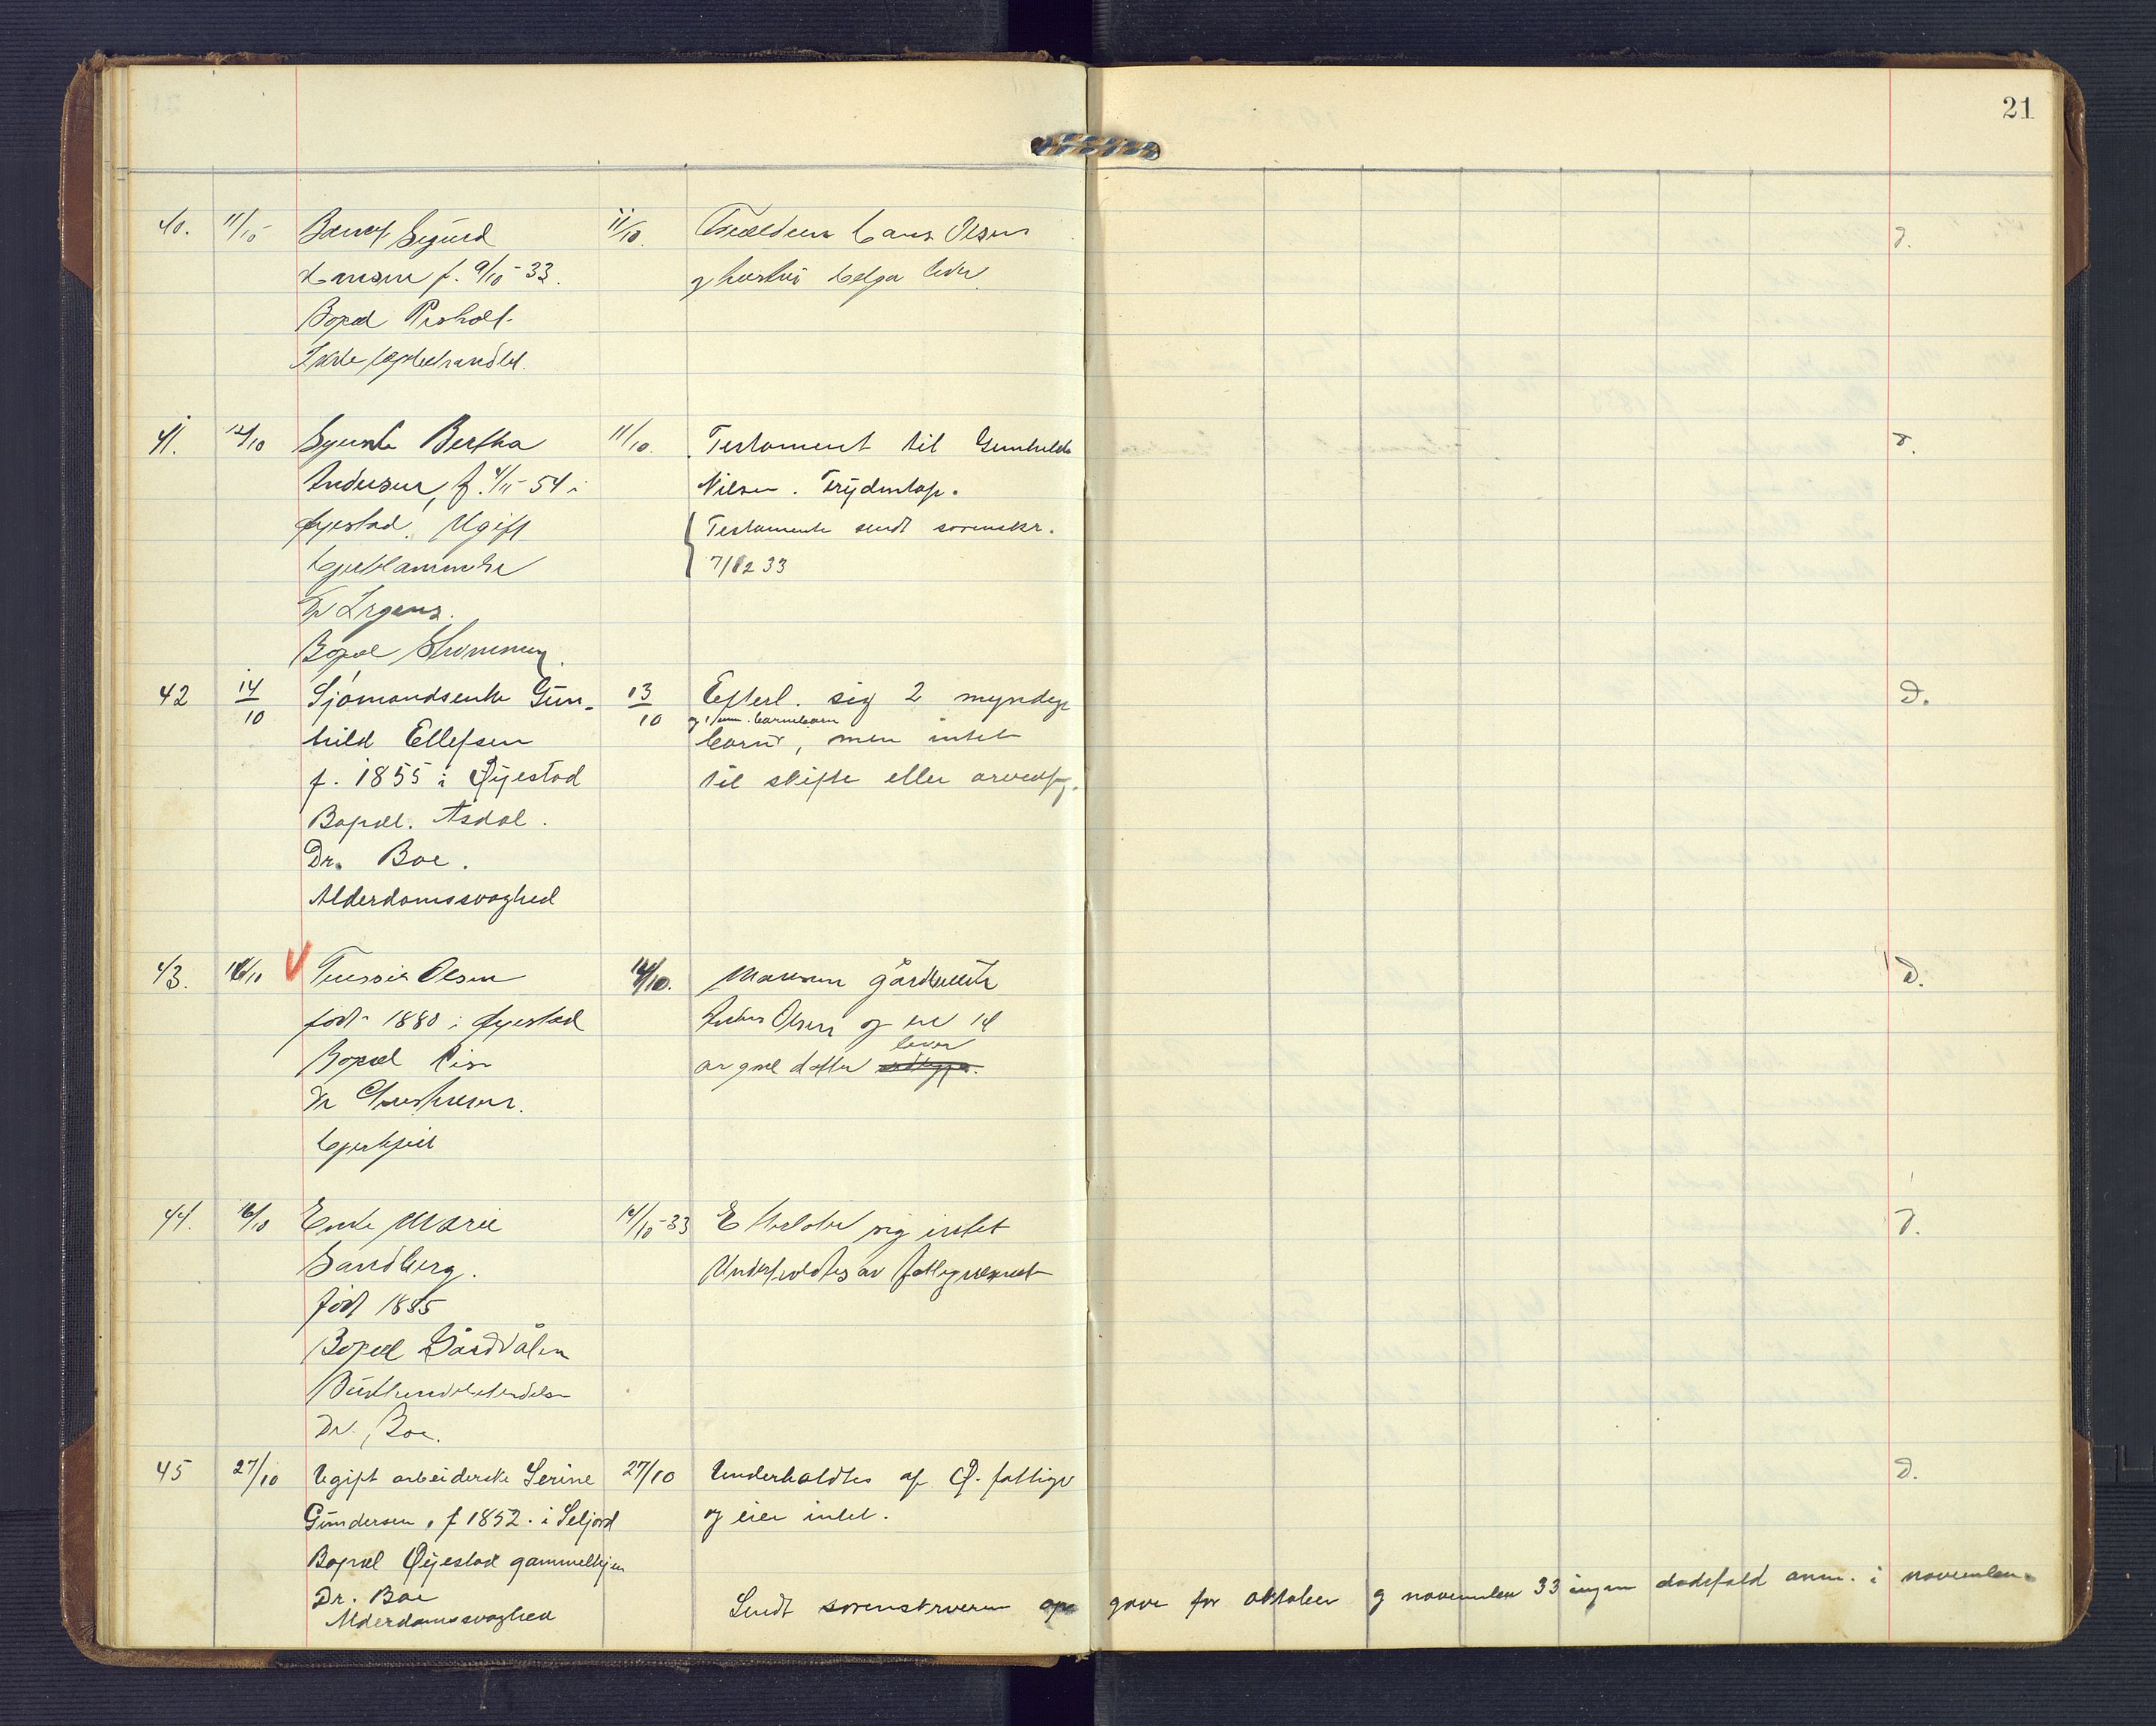 21
40. 11/10 Barnet Sigurd 11/10. Forældrene Hans Olsen d.
Hansen f. 9/10-33. og hustru Helga lever
Bopæl Risholt.
Ikke lægebehandlet.
41. 12/10 Syerske Bertha 11/10. Testament til Gunhilda d.
Andersen, f. 4/11-54 i Nilsen. Frydentop.
Øyestad. Ugift Testamente sendt sorenskr.
Hjertelammelse 7/12 33
Dr Irgens.
Bopæl Strømmen.
42 14/10 Sjømandsenke Gun- 13/10 Efterl. sig 2 myndige D.
og 1 um. barnebarn
hild Ellefsen barn, men intet
f. 1855 i Øyestad til skifte eller arveafg.
Bopæl. Asdal.
Dr. Boe.
Alderdomssvaghed
43. 16/10 Olsen 14/10. Manden gårdbruker D.
født 1880 i Øyestad Olsen og en 14
lever
Bopæl år gml datter
Dr Christensen.
Hjertefeil
44. 16/10 Enke Marie 14/10-33 Efterlater sig intet d.
Sandberg. Underholdtes av fattigvesenet
født 1855
Bopæl
Bukhindebetendelse
Dr. Boe.
45 27/10 Ugift arbeiderske Serine 27/10 Underholdtes af Ø. fattigv D.
Gundersen, f 1852. i Seljord og eier intet.
Bopæl Øyestad gammelhjem
Dr. Boe
Alderdomssvaghed
Sendt sorenskriveren opgave for oktober og november 33 ingen dødsfald anm. i november.